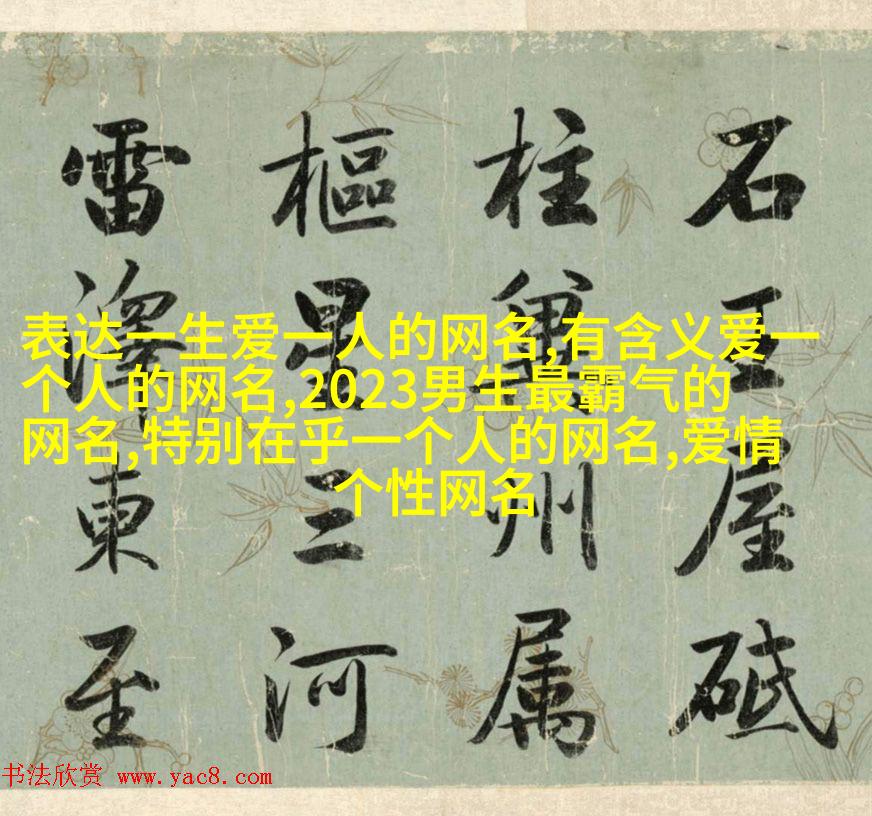 石王屋砥
柱州属
樞星三河
雷澤東至
表达一生爱一人的网名,有含义爱一
个人的网名,2023男生最霸气的
网名,特别在乎一个人的网名,爱情
个性网名
书法欣赏 www.yac8.com